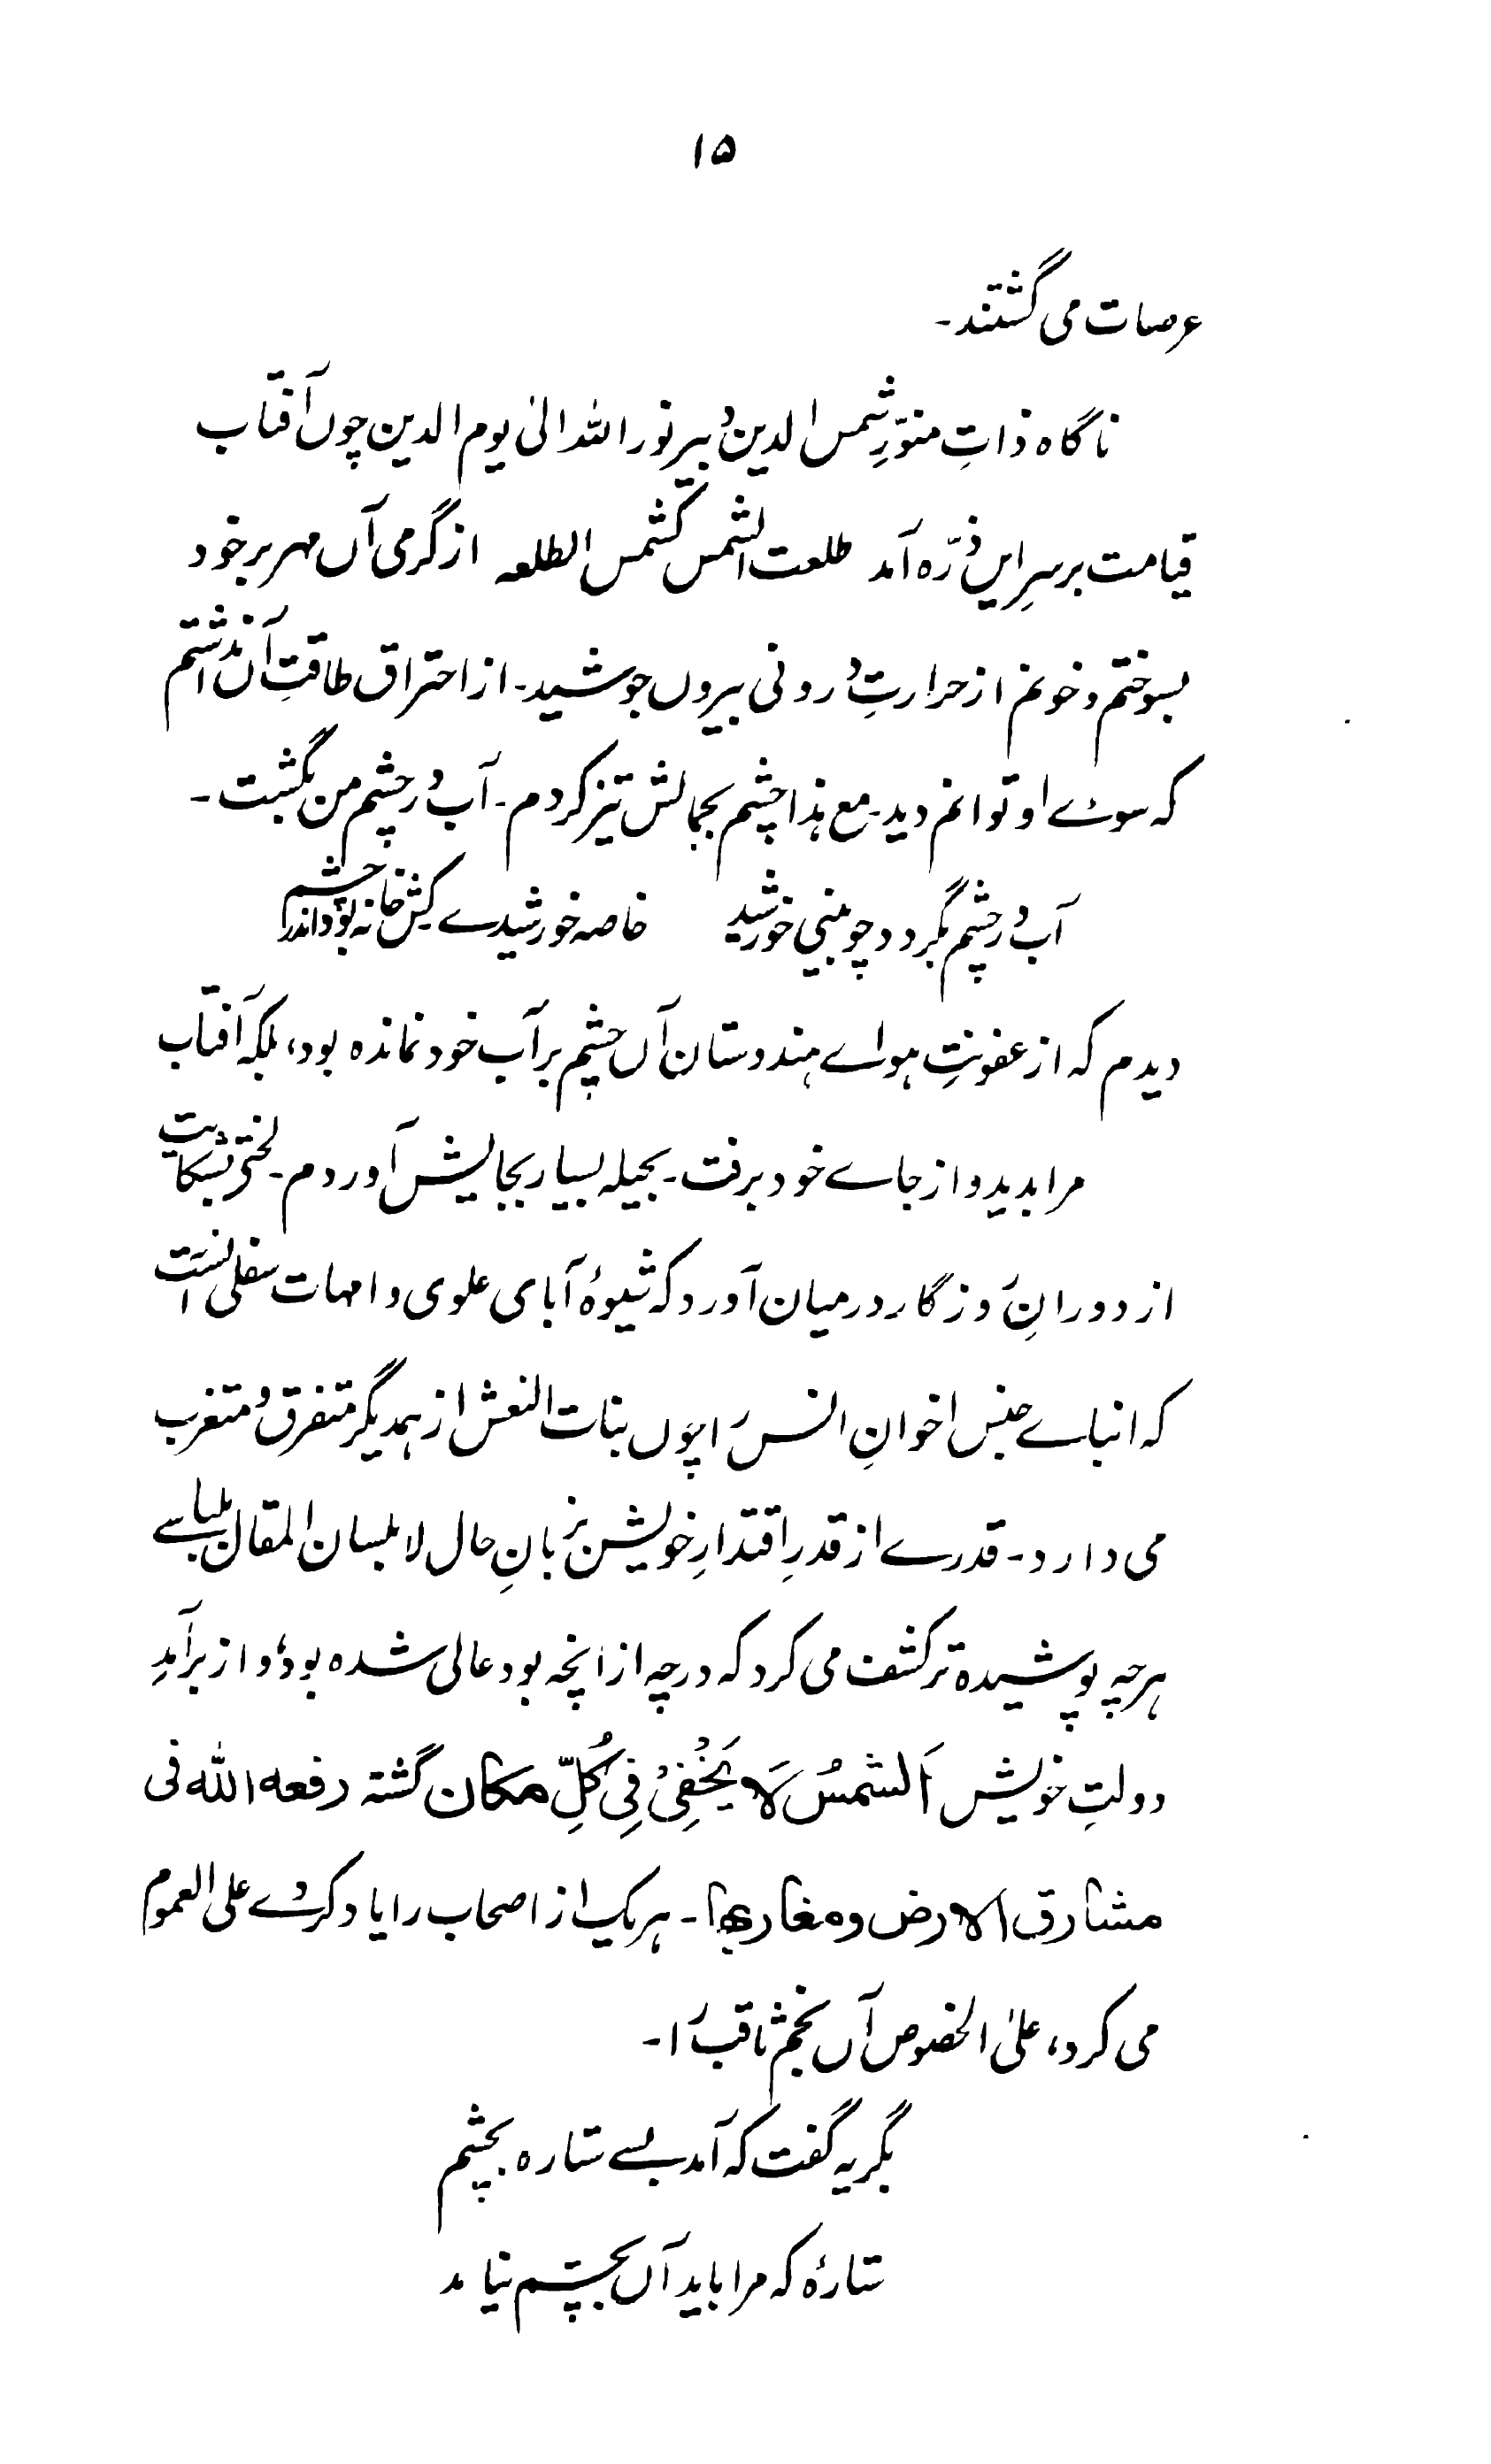 ۱۵
عرصات می گشتند۔
ناگاه ذاتِ منوّرِ شمس الدین دبیر نور الله الیٰ یوم الدین چوں آفتاب
قیامت بر سرِ ایں ذرّه آمد طلعت الشمس کشمس الطلعه از گرمی آں مهر بر خود
بسوختم و خونم از حرارتِ درونی بیروں جوشید۔ از احتراق طاقتِ آں نداشتم
که سوے او توانم دید۔ مع هذا چشم بجمالش تیز کردم۔ آب در چشم من بگشت۔
آب در چشم بگردد چو ببینی خورشید خاصه خورشیدے کیش خانه بود اندر چشم
دیدم که از عفونتِ هواے هندوستان آں چشم بر آب خود نمانده بود، بلکه آفتاب
مرا بدید و از جاے خود برفت۔ بحیله بسیار بجایش آوردم۔ لختے بشکایت
از دورانِ روزگار درمیان آورد که شیوۀ آبای علوی و امهات سفلی آنست
که ابناے جنس اخوانِ انس را چوں بنات النعش از همدیگر متفرق و متغرب
می دارد۔ قدرے از قدرِ اقتدارِ خویش بزبانِ حال لا بلسان المقال بلباسے
هرچه پوشیده تر کشف می کرد که درجه از آنچه بود عالی شده بود، و از برآمدِ
دولتِ خویش اَلشمسُ لَا یَخْفِیْ فِی کُلِّ مکان گشته رفعه الله فی
مشارق الارض و مغاربها۔ هریک از اصحاب را یاد کردے علی العموم
می کرد، علیٰ الخصوص آں نجم ثاقب را۔
بگریه گفت که آمد بسے ستاره بچشم
ستارۀ که مرا باید آں بچشم نیامد